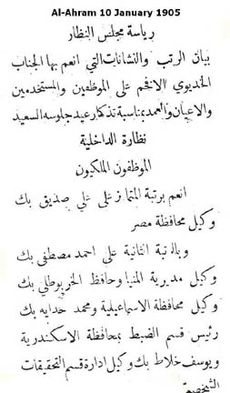 Al-Ahram 10 January 1905
رياسة مجلس النظار
بيان الرتب والنشانات التي انعم بها الجناب
الخديوي الافخم على الموظفين والمستخدمين
والاعيان والعمد بمناسبة تذكار عيد جلوسه السعيد
نظارة الداخلية
الموظفون الملكيون
انعم برتبة المتمايز على علي صديق بك
وكيل محافظة مصر
وبالرتبة الثانية على احمد مصطفى بك
وكيل مديرية المنيا وحافظ الخربوطلي بك
وكيل محافظة الاسماعيلية ومحمد حدايه بك
رئيس قسم الضبط بمحافظة الاسكندرية
ويوسف خلاط بك وكيل ادارة قسم التحقيقات
الشخصية